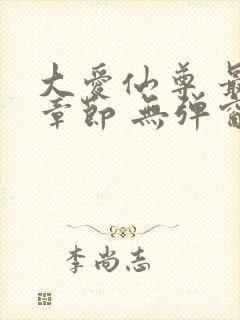 大愛仙尊 最
章節 無弹窗
李尚志